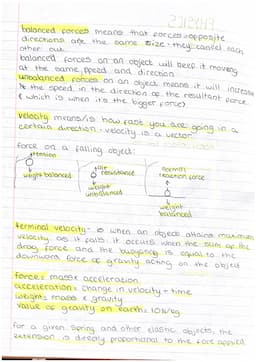 balanced forces means that forces opposite
directions are the same size - they cancel each
other out.
balanced forces on an object will keep it moving
at the same speed and direction
unbalanced forces on an object means it will increase
the speed in the direction of the resultant force
(which is when its the bigger force)
velocity means/is how fast you are going in a
certain direction. velocity is a vector
force on a falling object:
tension
weight balanced
air resistance
weight unbalanced
normal reaction force
weight balanced
terminal velocity - when an object attains maximum
velocity as it falls. it occurs when the sum of the
drag force and the buoyancy is equal to the
downward force of gravity acting on the object
force = mass x acceleration
acceleration = change in velocity ÷ time
weight = mass x gravity
value of gravity on earth = 10N/kg
for a given spring and other elastic objects, the
extension is directly proportional to the force applied